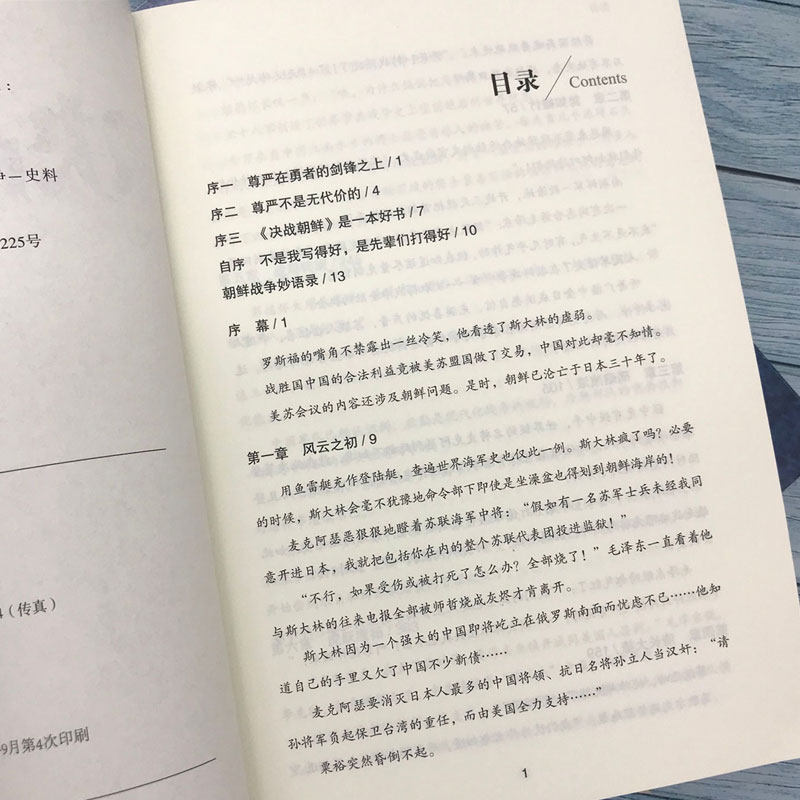 :
一史料
225号
（传真）
9月第4次印刷
目录 Contents
序一 尊严在勇者的剑锋之上 / 1
序二 尊严不是无代价的 / 4
序三 《决战朝鲜》是一本好书 / 7
自序 不是我写得好，是先辈们打得好 / 10
朝鲜战争妙语录 / 13
序 幕 / 1
罗斯福的嘴角不禁露出一丝冷笑，他看透了斯大林的虚弱。
战胜国中国的合法利益竟被美苏盟国做了交易，中国对此却毫不知情。
美苏会议的内容还涉及朝鲜问题。是时，朝鲜已沦亡于日本三十年了。
第一章 风云之初 / 9
用鱼雷艇充作登陆艇，查遍世界海军史也仅此一例。斯大林疯了吗？必要
的时候，斯大林会毫不犹豫地命令部下即使是坐澡盆也得划到朝鲜海岸的！
麦克阿瑟恶狠狠地瞪着苏联海军中将：“假如有一名苏军士兵未经我同
意开进日本，我就把包括你在内的整个苏联代表团投进监狱！”
“不行，如果受伤或被打死了怎么办？全部烧了！”毛泽东一直看着他
与斯大林的往来电报全部被师哲烧成灰烬才肯离开。
斯大林因为一个强大的中国即将屹立在俄罗斯南面而忧虑不已……他知
道自己的手里又欠了中国不少新债……
麦克阿瑟要消灭日本人最多的中国将领、抗日名将孙立人当汉奸：“请
孙将军负起保卫台湾的重任，而由美国全力支持……”
粟裕突然昏倒不起。
1